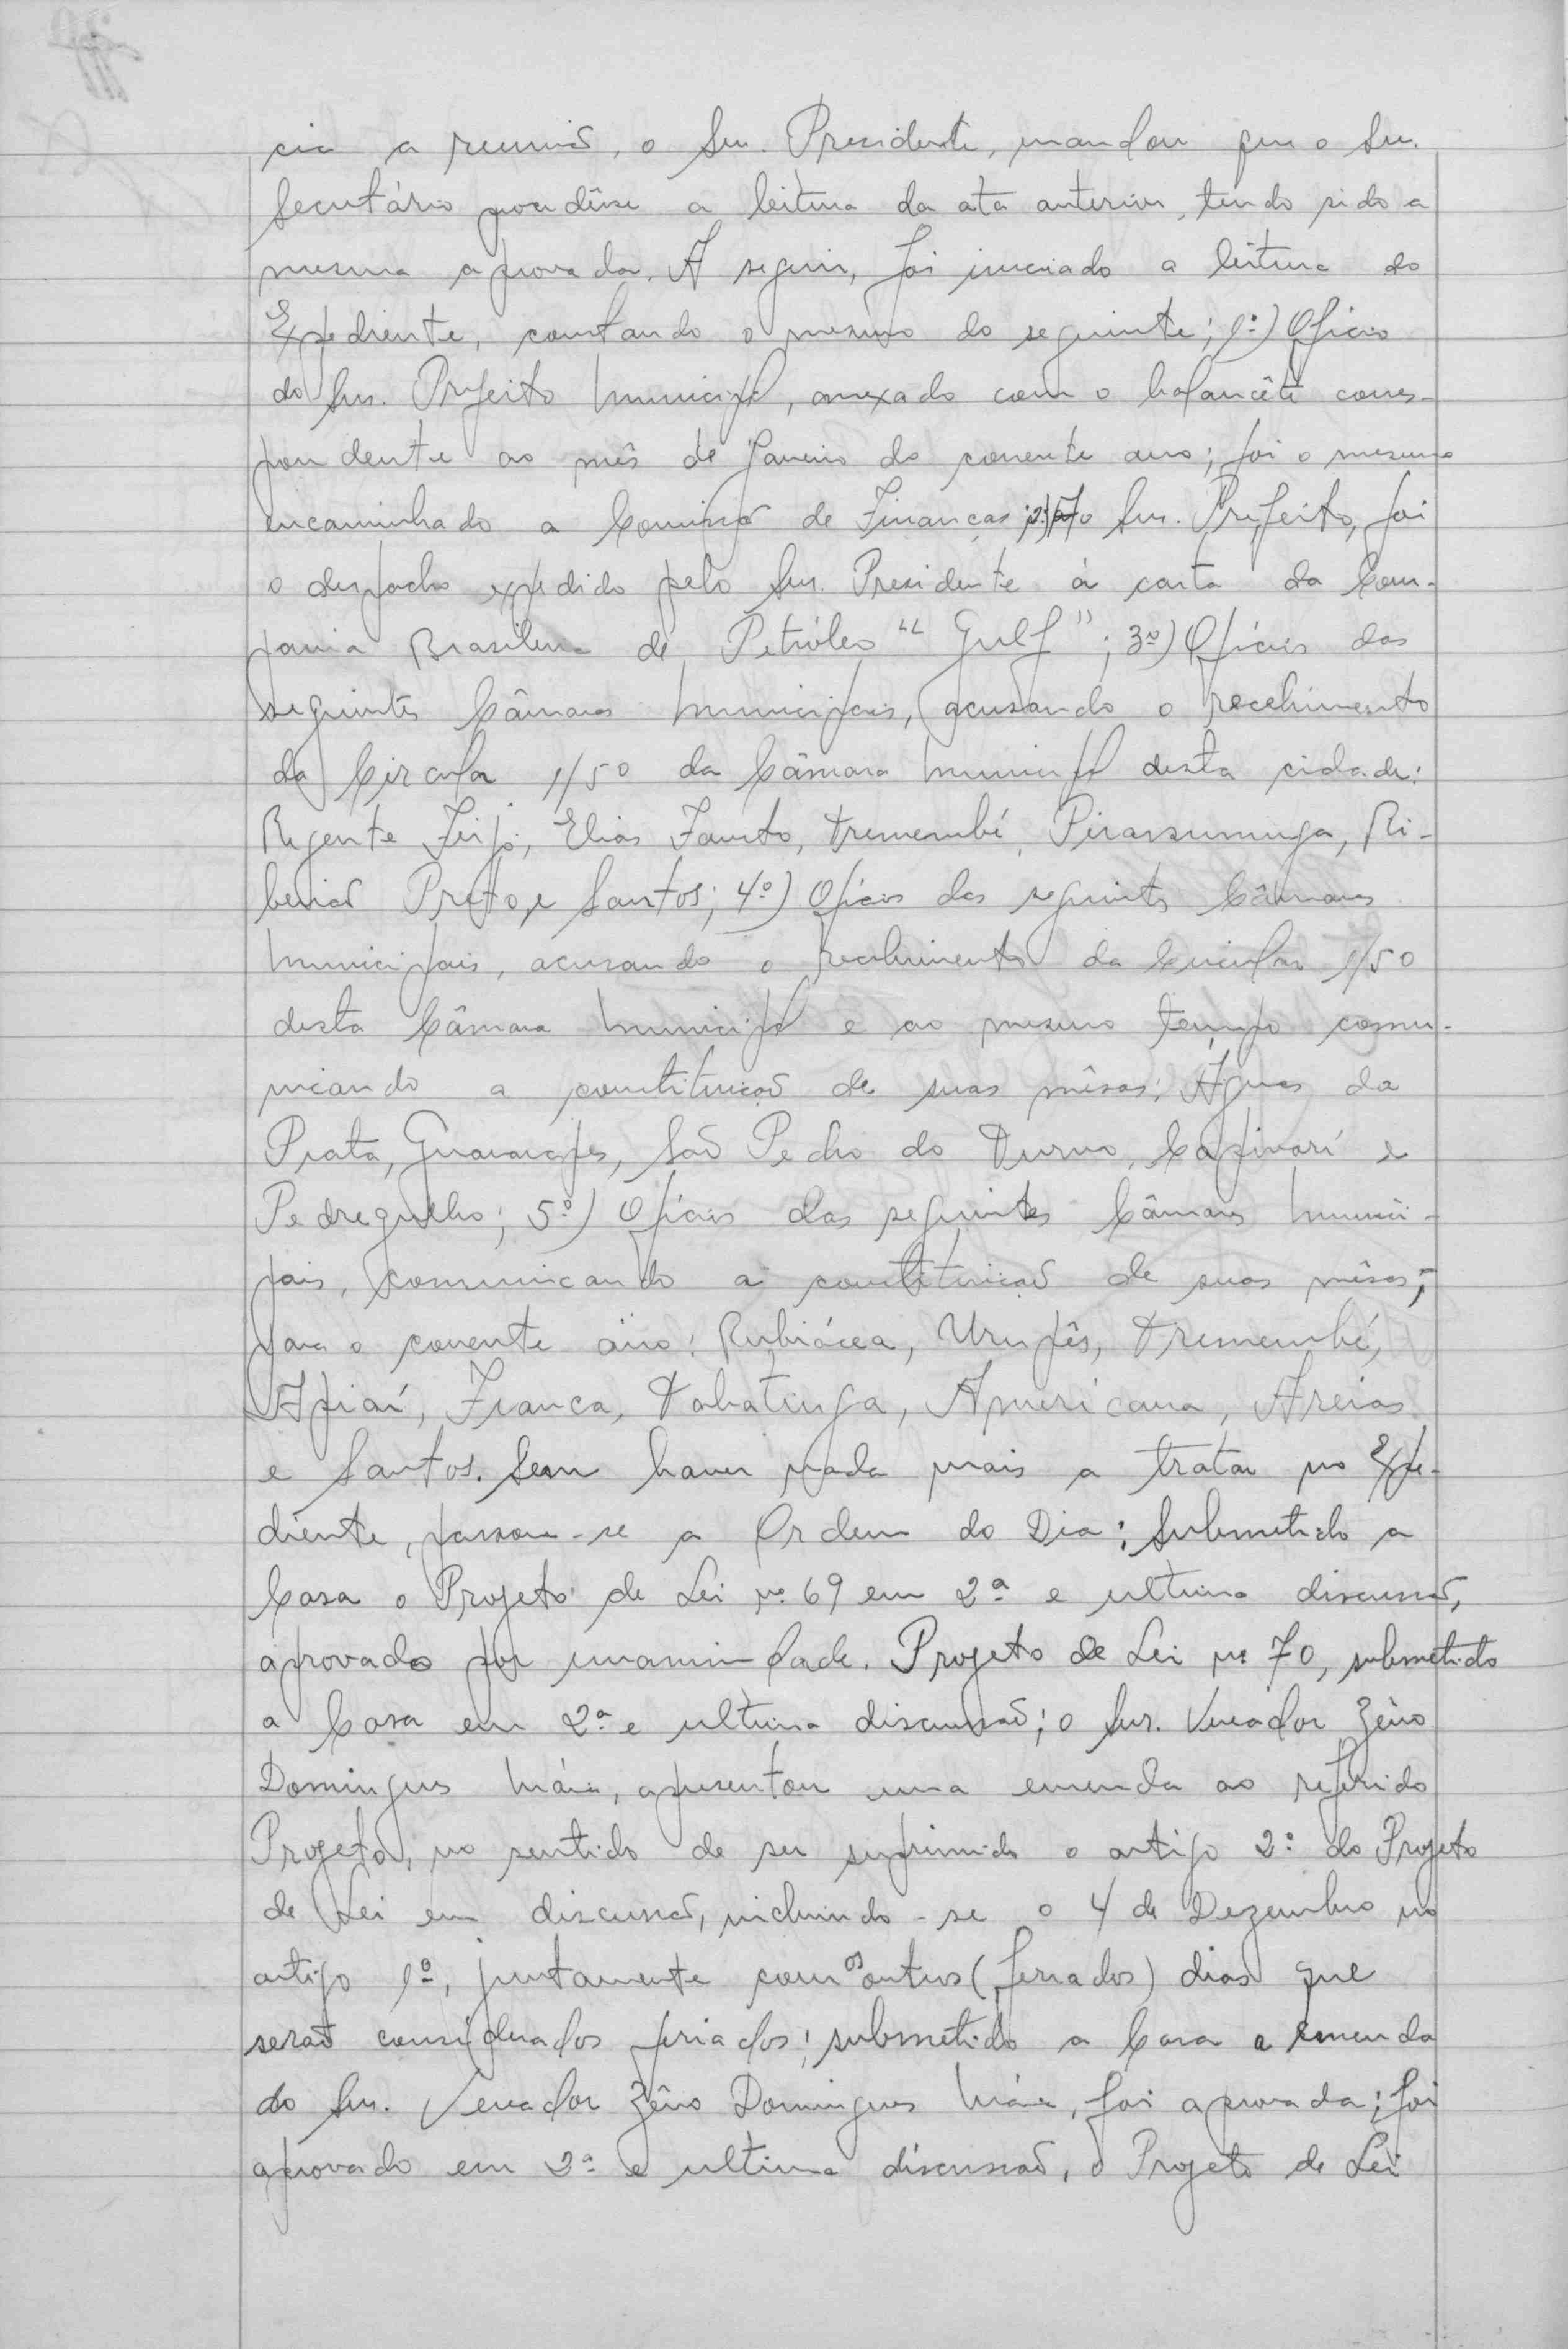 cia a reunião, o Snr. Presidente, mandou que o Snr.
Secretário procedêsse a leitura da ata anterior, tendo sido a
mesma aprovada. A seguir, foi iniciado a leitura do
Expediente, constando o mesmo do seguinte; 1º) Ofício
do Snr. Prefeito Municipal, anexado com o balancête corres-
pondente ao mês de Janeiro do corrente ano; foi o mesmo
encaminhado a Comissão de Finanças; 2º) Ao Snr. Prefeito, foi
o despacho expedido pelo Snr. Presidente á carta da Com-
pania Brasileira de Petróleo "Gulf"; 3º) Ofícios das
seguintes Câmaras Municipais, acusando o recebimento
da Circular 1/50 da Câmara Municipal desta cidade:
Regente Feijó, Elias Fausto, Tremembé, Pirassununga, Ri-
beirão Preto, e Santos; 4º) Ofícios das seguintes Câmaras
Municipais, acusando o recebimento da Circular 1/50
desta Câmara Municipal e ao mesmo tempo comu-
nicando a constituição de suas mêsas; Águas da
Prata, Guararapes, São Pedro do Turvo, Capivarí e
Pedregulho; 5º) Ofícios das seguintes Câmaras Munici-
pais, comunicando a constituição de suas mêsas;
para o corrente âno: Rubiácea, Urupês, Tremembé,
Apiaí, Franca, Tabatinga, Americana, Areias
e Santos. Sem haver nada mais a tratar no Expe-
diente, passou-se a Ordem do Dia: Submetido a
Casa o Projeto de Lei nº 69 em 2ª e ultima discussão,
aprovado por unanimidade. Projeto de Lei nº 70, submetido
a Casa em 2ª e ultima discussão; o Snr. Vereador Zêno
Domingues Máia, apresentou uma emenda ao referido
Projeto, no sentido de ser suprimido o artigo 2º do Projeto
de Lei em discussão, incluindo-se o 4 de Dezembro no
artigo 1º, juntamente com os outros (feriados) dias que
serão considerados feriados; submetido a Casa a Emenda
do Snr. Vereador Zêno Domingues Máia, foi aprovada; foi
aprovado em 2ª e ultima discussão, o Projeto de Lei